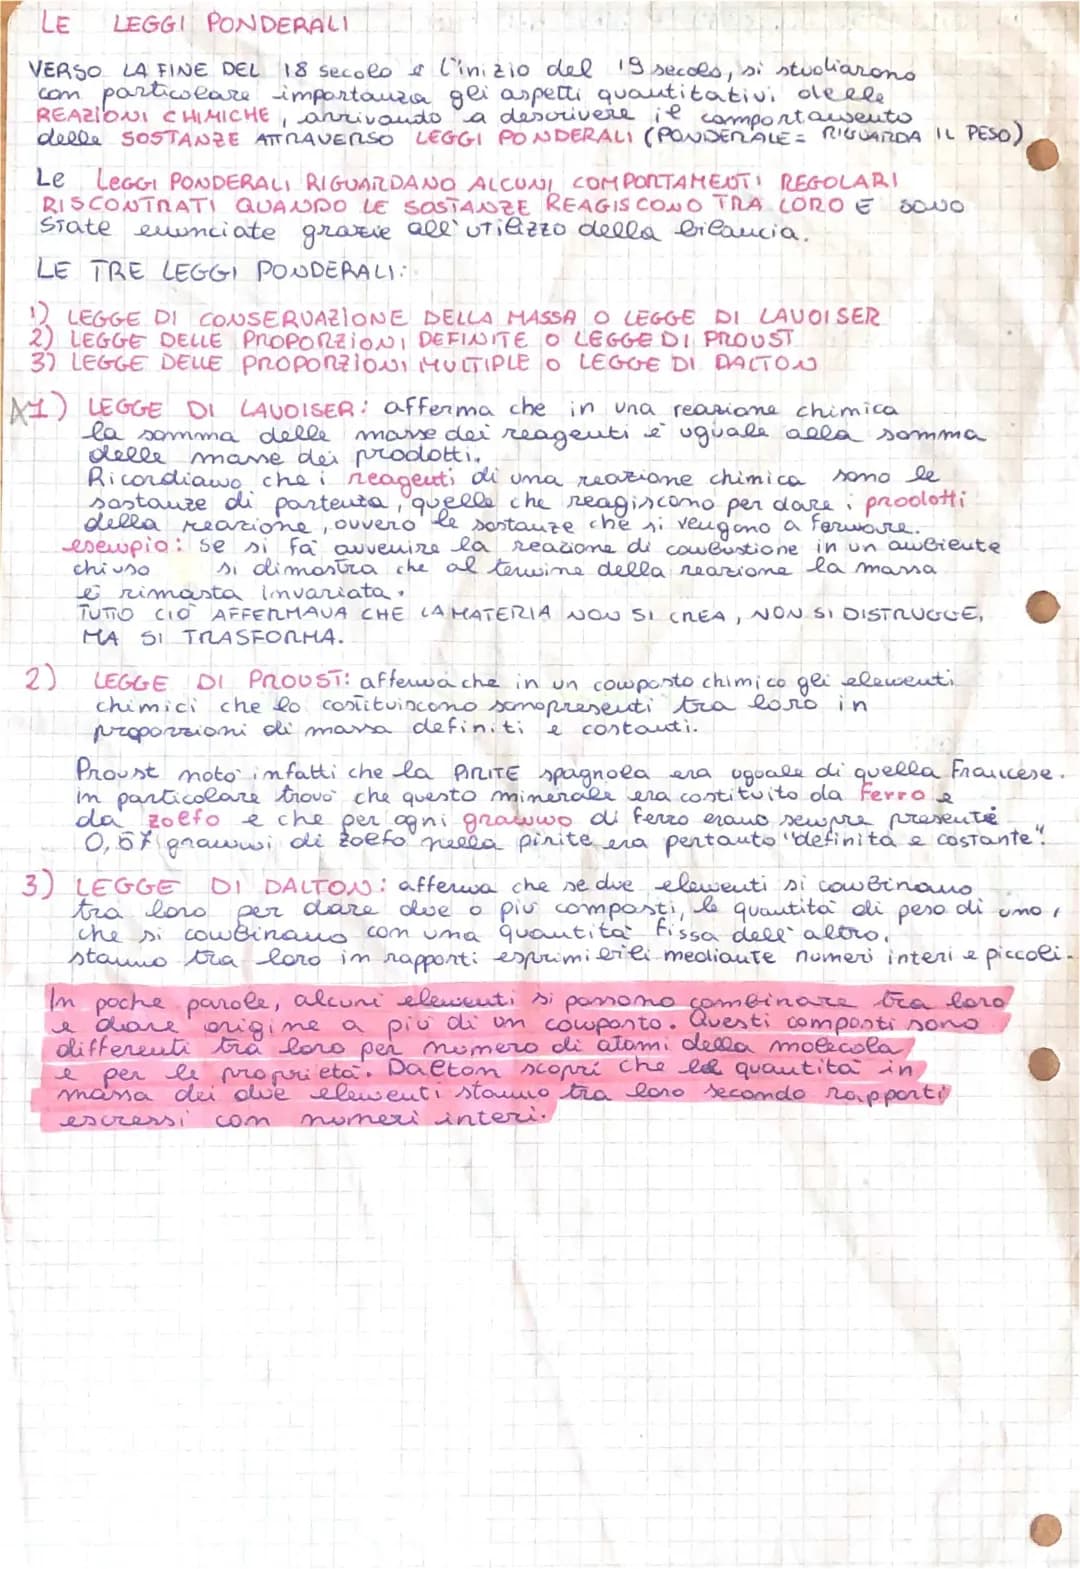 LE LEGGI PONDERALI
VERSO LA FINE DEL 18 secolo e l'inizio del 19 secolo, si studiarono
con particolare importanza gli aspetti quantitativi delle
REAZIONI CHIMICHE, arrivando a descrivere il comportamento
delle SOSTANZE ATTRAVERSO LEGGI PONDERALI (PONDERALE = RIGUARDA IL PESO)
Le LEGGI PONDERALI RIGUARDANO ALCUNI COMPORTAMENTI REGOLARI
RISCONTRATI QUANDO LE SOSTANZE REAGISCONO TRA LORO E SONO
state enunciate grazie all'utilizzo della bilancia.
LE TRE LEGGI PONDERALI:
1) LEGGE DI CONSERVAZIONE DELLA MASSA O LEGGE DI LAVOISER
2) LEGGE DELLE PROPORZIONI DEFINITE O LEGGE DI PROUST
3) LEGGE DELLE PROPORZIONI MULTIPLE O LEGGE DI DALTON
1) LEGGE DI LAVOISER: afferma che in una reazione chimica
la somma delle masse dei reagenti è uguale alla somma
delle masse dei prodotti.
Ricordiamo che i reagenti di una reazione chimica sono le
sostanze di partenza, quelle che reagiscono per dare i prodotti
della reazione, ovvero le sostanze che si vengono a formare.
esempio: se si fa avvenire la reazione di combustione in un ambiente
chiuso si dimostra che al termine della reazione la massa
è rimasta invariata.
TUTTO CIÒ AFFERMAVA CHE LA MATERIA NON SI CREA, NON SI DISTRUGGE,
MA SI TRASFORMA.
2) LEGGE DI PROUST: afferma che in un composto chimico gli elementi
chimici che lo costituiscono sono presenti tra loro in
proporzioni di massa definiti e costanti.
Proust notò infatti che la PIRITE spagnola era uguale di quella Francese.
In particolare trovò che questo minerale era costituito da ferro e
da zolfo e che per ogni grammo di ferro erano sempre presenti
0,57 grammi di zolfo nella pirite era pertanto "definita e costante".
3) LEGGE DI DALTON: afferma che se due elementi si combinano
tra loro per dare due o più composti, le quantità di peso di uno,
che si combinano con una quantità fissa dell'altro,
stanno tra loro in rapporti esprimibili mediante numeri interi e piccoli.
In poche parole, alcuni elementi si possono combinare tra loro
e dare origine a più di un composto. Questi composti sono
differenti tra loro per numero di atomi della molecola
e per le proprietà. Dalton scoprì che le quantità in
massa dei due elementi stanno tra loro secondo rapporti
espressi con numeri interi.